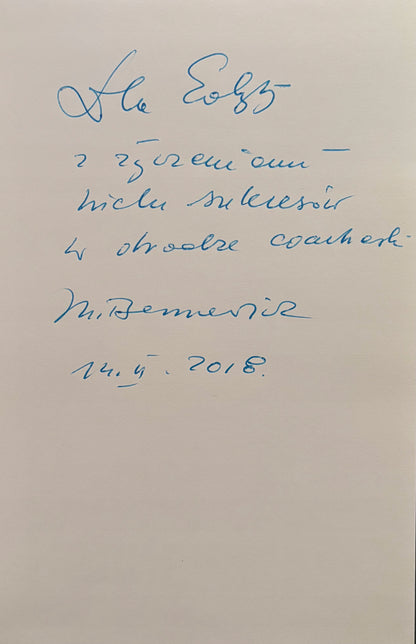 Dla Edyty
z życzeniami –
wielu sukcesów
w drodze coacharki
M. Bennewicz
14. II. 2018.